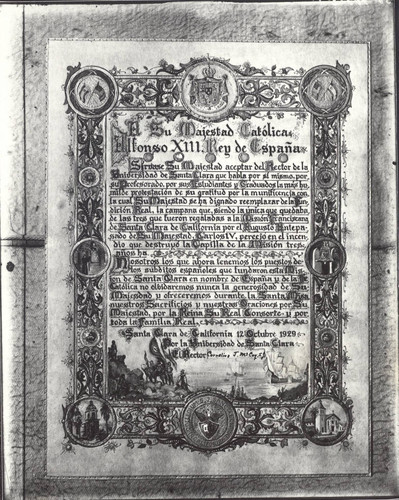 A Su Majestad Católica
Alfonso XIII, Rey de España
Sírvase Su Majestad aceptar del Rector de la
Universidad de Santa Clara que habla por sí mismo, por
su Profesorado, por sus Estudiantes y Graduados la más hu-
milde protestación de su gratitud por la munificencia con
la cual Su Majestad se ha dignado reemplazar de la Fun-
dición Real, la campana que, siendo la única que quedaba,
de las tres que fueron regaladas a la Misión Franciscana
de Santa Clara de California por el Augusto Antepa-
sado de Su Majestad, Carlos IV, pereció en el incendi-
o que destruyó la Capilla de la Misión tres
años ha
Nosotros los que ahora tenemos los puestos de
los súbditos españoles que fundaron esta Mis-
ión de Santa Clara en nombre de España y de la Fé
Católica no olvidaremos nunca la generosidad de Su
Majestad y ofreceremos durante la Santa Misa
nuestros Sacrificios y nuestras Oraciones por Su
Majestad, por la Reina Su Real Consorte y por
toda la Familia Real
Santa Clara de California 12 Octubre 1929
Por la Universidad de Santa Clara
El Rector Cornelius J. McCoy, S.J.